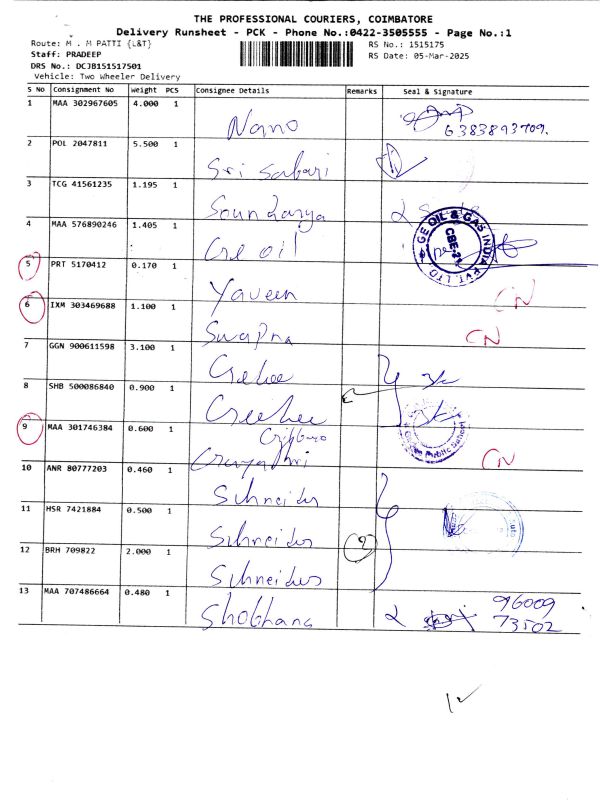 THE PROFESSIONAL COURIERS, COIMBATORE
Delivery Runsheet - PCK - Phone No.:0422-3505555 - Page No.:1
Route: M . M PATTI {L&T}
RS No.: 1515175
Staff: PRADEEP
RS Date: 05-Mar-2025
DRS No.: DCJB151517501
Vehicle: Two Wheeler Delivery
S No Consignment No Weight PCS Consignee Details Remarks Seal & Signature
1 MAA 302967605 4.000 1 Nano 6383893709.
2 POL 2047811 5.500 1 Sri Sabari
3 TCG 41561235 1.195 1 Soundarya
4 MAA 576890246 1.405 1 Ge oil
GE OIL & GAS INDIA PVT. LTD
CBE-21
5 PRT 5170412 0.170 1 Yaveen CN
6 IXM 303469688 1.100 1 Swapna CN
7 GGN 900611598 3.100 1
8 SHB 500086840 0.900 1
Public School
9 MAA 301746384 0.600 1 CN
10 ANR 80777203 0.460 1 Schneider
11 HSR 7421884 0.500 1 Schneider
12 BRH 709822 2.000 1 Schneider
13 MAA 707486664 0.480 1 Shobhana 96009
73502